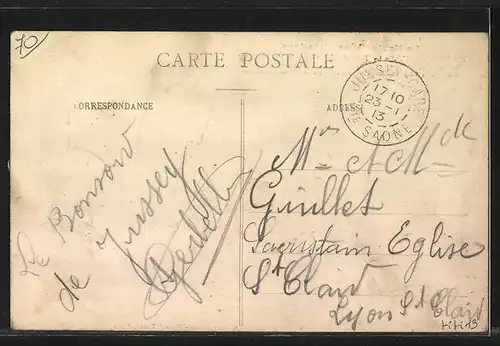 70
CARTE POSTALE
CORRESPONDANCE
ADRESSE
JUSSEY GARE
17 10
23 - 1
13
HTE SAONE
Le Bonsoir
de Jussey
Mr & Mde
Guillet
Sacristain Eglise
St Clair
Lyon St Clair